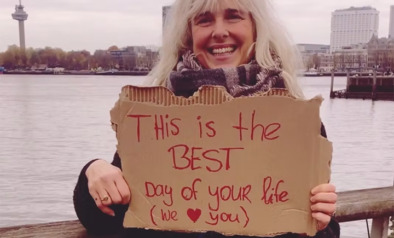 THis is the
BEST
Day of your life
(we ♥ you)